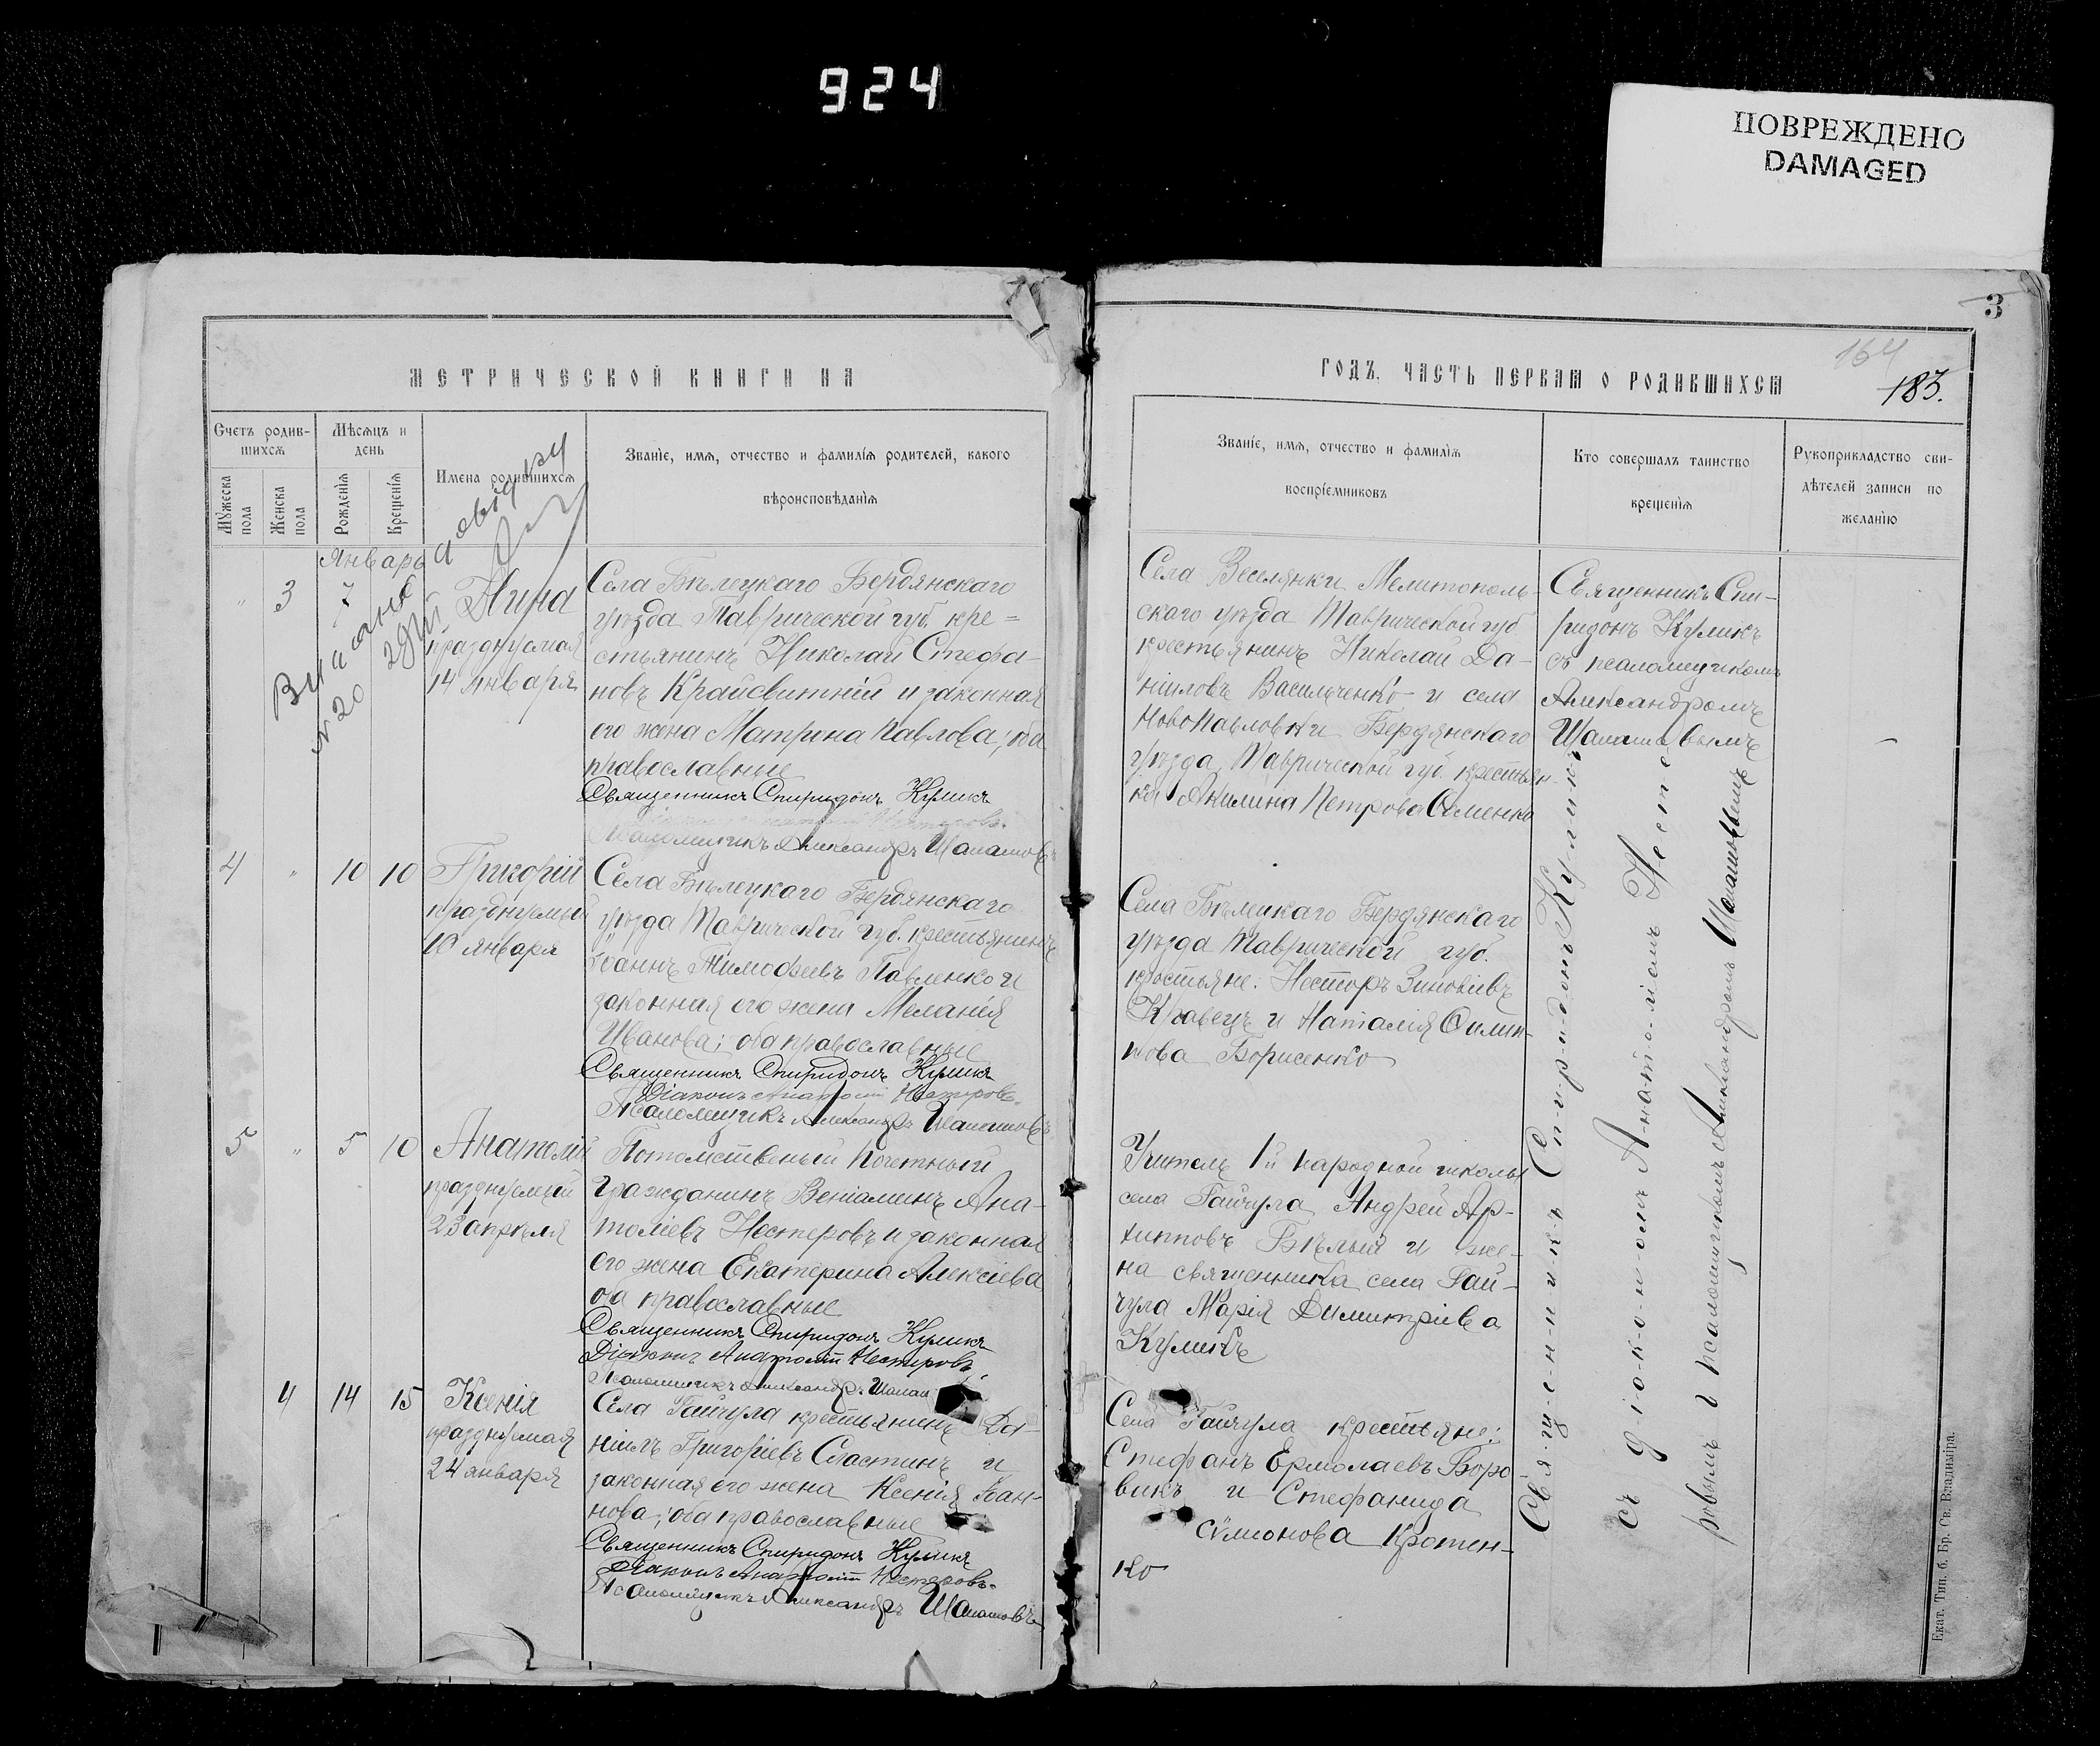 924
ПОВРЕЖДЕНО
DAMAGED
3
164
183.
МЕТРИЧЕСКОЙ КНИГИ НА
Счетъ родив-
шихся
Мѣсяцъ и
день
Мужеска
пола
Женска
пола
Рожденія
Крещенія
Имена родившихся
Званіе, имя, отчество и фамилія родителей, какого
вѣроисповѣданія
Январь
" 3 7
Нина
празднуемая
14 января
№ 20
Села Бѣлецкаго Бердянскаго
уѣзда Таврической губ. кре=
стьянинъ Николай Стефа-
новъ Крайсвитній и законная
его жена Матрона Павлова; оба
православные
Священникъ Спиридонъ Куликъ
Псаломщикъ Александръ
4 " 10 10
Григорій
празднуемый
10 января
Села Бѣлецкаго Бердянскаго
уѣзда Таврической губ. крестьянинъ
Іоаннъ Тимофеевъ Павленко и
законная его жена Меланія
Иванова; оба православные
Священникъ Спиридонъ Куликъ
Діаконъ Анатолій Нестеровъ
Псаломщикъ Александръ
5 " 5 10
Анатолій
празднуемый
23 апрѣля
Потомственый Почетный
Гражданинъ Веніаминъ Ана-
толіевъ Нестеровъ и законная
его жена Екатерина Алексіева
оба православные
Священникъ Спиридонъ Куликъ
Діаконъ Анатолій Нестеровъ
Псаломщикъ Александръ
4 14 15
Ксенія
празднуемая
24 января
Села Гайчула крестьянинъ Да-
ніилъ Григоріевъ Сластинъ и
законная его жена Ксенія Іоан-
нова; оба православные
Священникъ Спиридонъ Куликъ
Діаконъ Анатолій Нестеровъ
Псаломщикъ Александръ
ГОДЪ, ЧАСТЬ ПЕРВАЯ О РОДИВШИХСЯ
Званіе, имя, отчество и фамилія
воспріемниковъ
Кто совершалъ таинство
крещенія
Рукоприкладство сви-
дѣтелей записи по
желанію
Села Веселянки Мелитополь-
скаго уѣзда Таврической губ
крестьянинъ Николай Да-
ніиловъ Васильченко и села
НовоПавловки Бердянскаго
уѣзда, Таврической губ. крестьян-
ка Акилина Петрова
Священникъ Спи-
ридонъ Куликъ
съ псаломщикомъ
Александромъ
Села Бѣлецкаго Бердянскаго
уѣзда Таврической губ.
крестьяне: Несторъ Зиновіевъ
Кравецъ и Наталія Филип-
пова Борисенко
Учитель 1й народной школы
села Гайчула, Андрей Ар-
хиповъ Бѣлый и же-
на священника села Гай-
чула Марія Димитріева
Куликъ
Села Гайчула крестьяне:
Стефанъ Ермолаевъ Боро
викъ и Стефанида
Симонова Кротен-
ко
Священникъ Спиридонъ Куликъ
съ діакономъ Анатоліемъ Несте
ровымъ и псаломщикомъ Александромъ
Екат. Тип. б. Бр. Св. Владиміра.